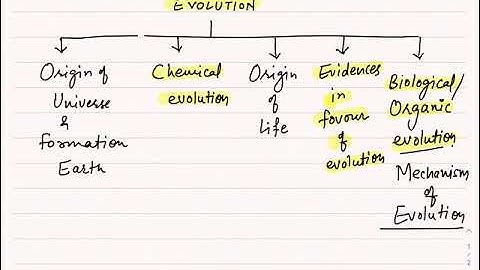 EVOLUTION
Origin of
Universe
&
formation
Earth
Chemical
evolution
Origin
of
Life
Evidences
in
favour
of
evolution
Biological/
Organic
evolution
Mechanism
of
Evolution
1
/
2